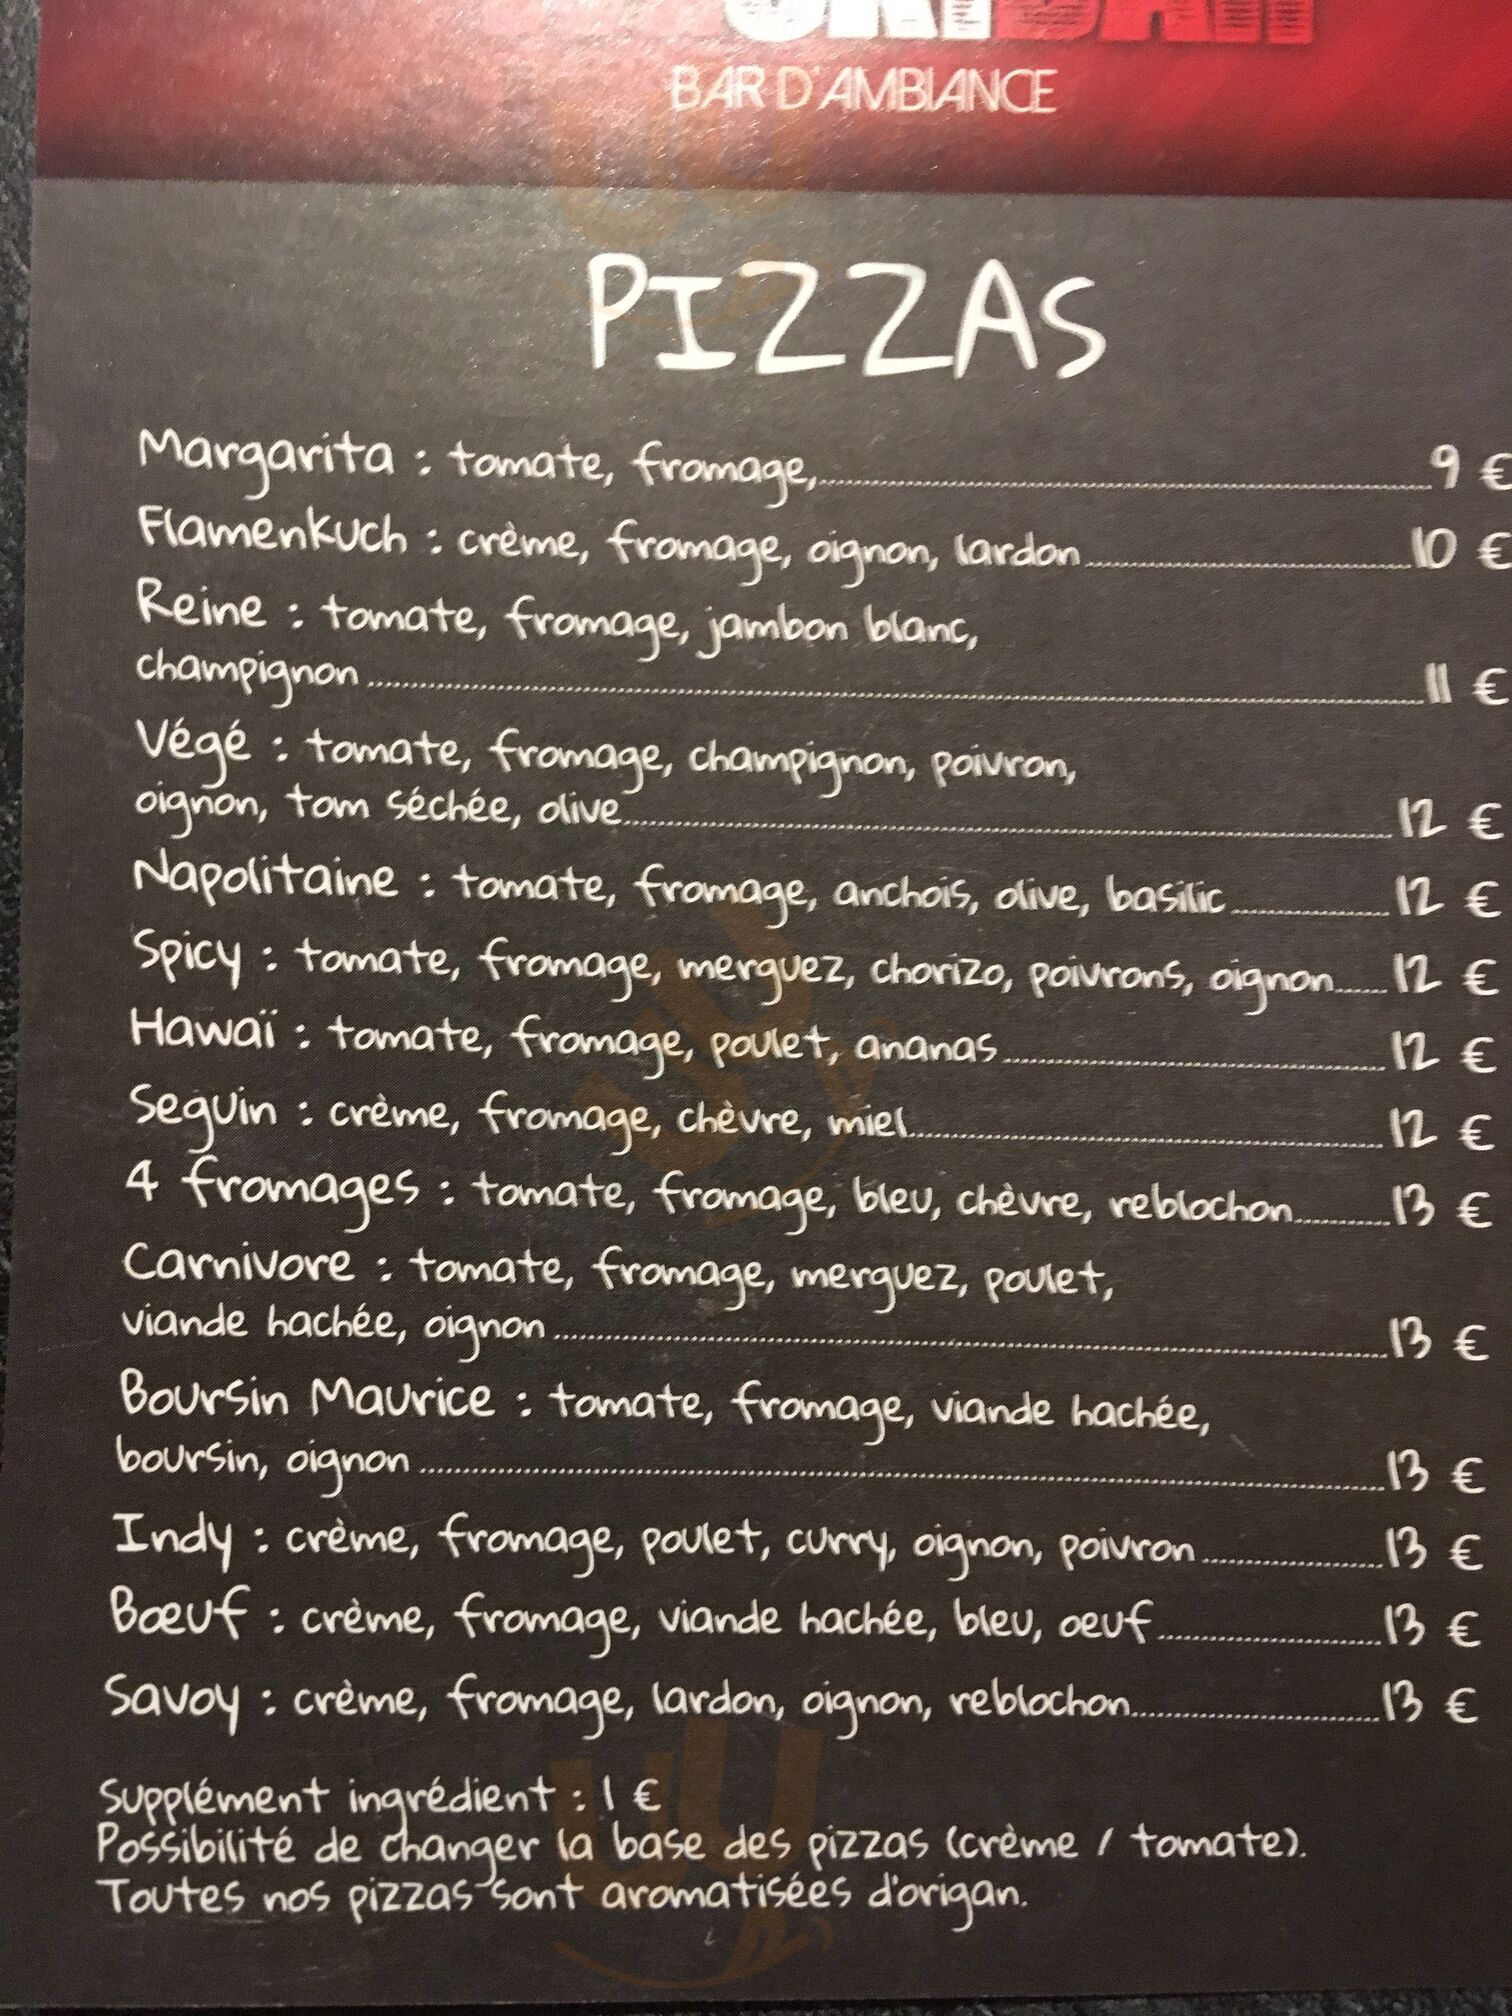 BAR D'AMBIANCE
PIZZAS
Margarita : tomate, fromage,........9 €
Flamenkuch : crème, fromage, oignon, lardon........10 €
Reine : tomate, fromage, jambon blanc,
champignon........11 €
Végé : tomate, fromage, champignon, poivron,
oignon, tom séchée, olive........12 €
Napolitaine : tomate, fromage, anchois, olive, basilic........12 €
Spicy : tomate, fromage, merguez, chorizo, poivrons, oignon........12 €
Hawaï : tomate, fromage, poulet, ananas........12 €
Seguin : crème, fromage, chèvre, miel........12 €
4 fromages : tomate, fromage, bleu, chèvre, reblochon........13 €
Carnivore : tomate, fromage, merguez, poulet,
viande hachée, oignon........13 €
Boursin Maurice : tomate, fromage, viande hachée,
boursin, oignon........13 €
Indy : crème, fromage, poulet, curry, oignon, poivron........13 €
Bœuf : crème, fromage, viande hachée, bleu, oeuf........13 €
Savoy : crème, fromage, lardon, oignon, reblochon........13 €
Supplément ingrédient : 1 €
Possibilité de changer la base des pizzas (crème / tomate).
Toutes nos pizzas sont aromatisées d'origan.